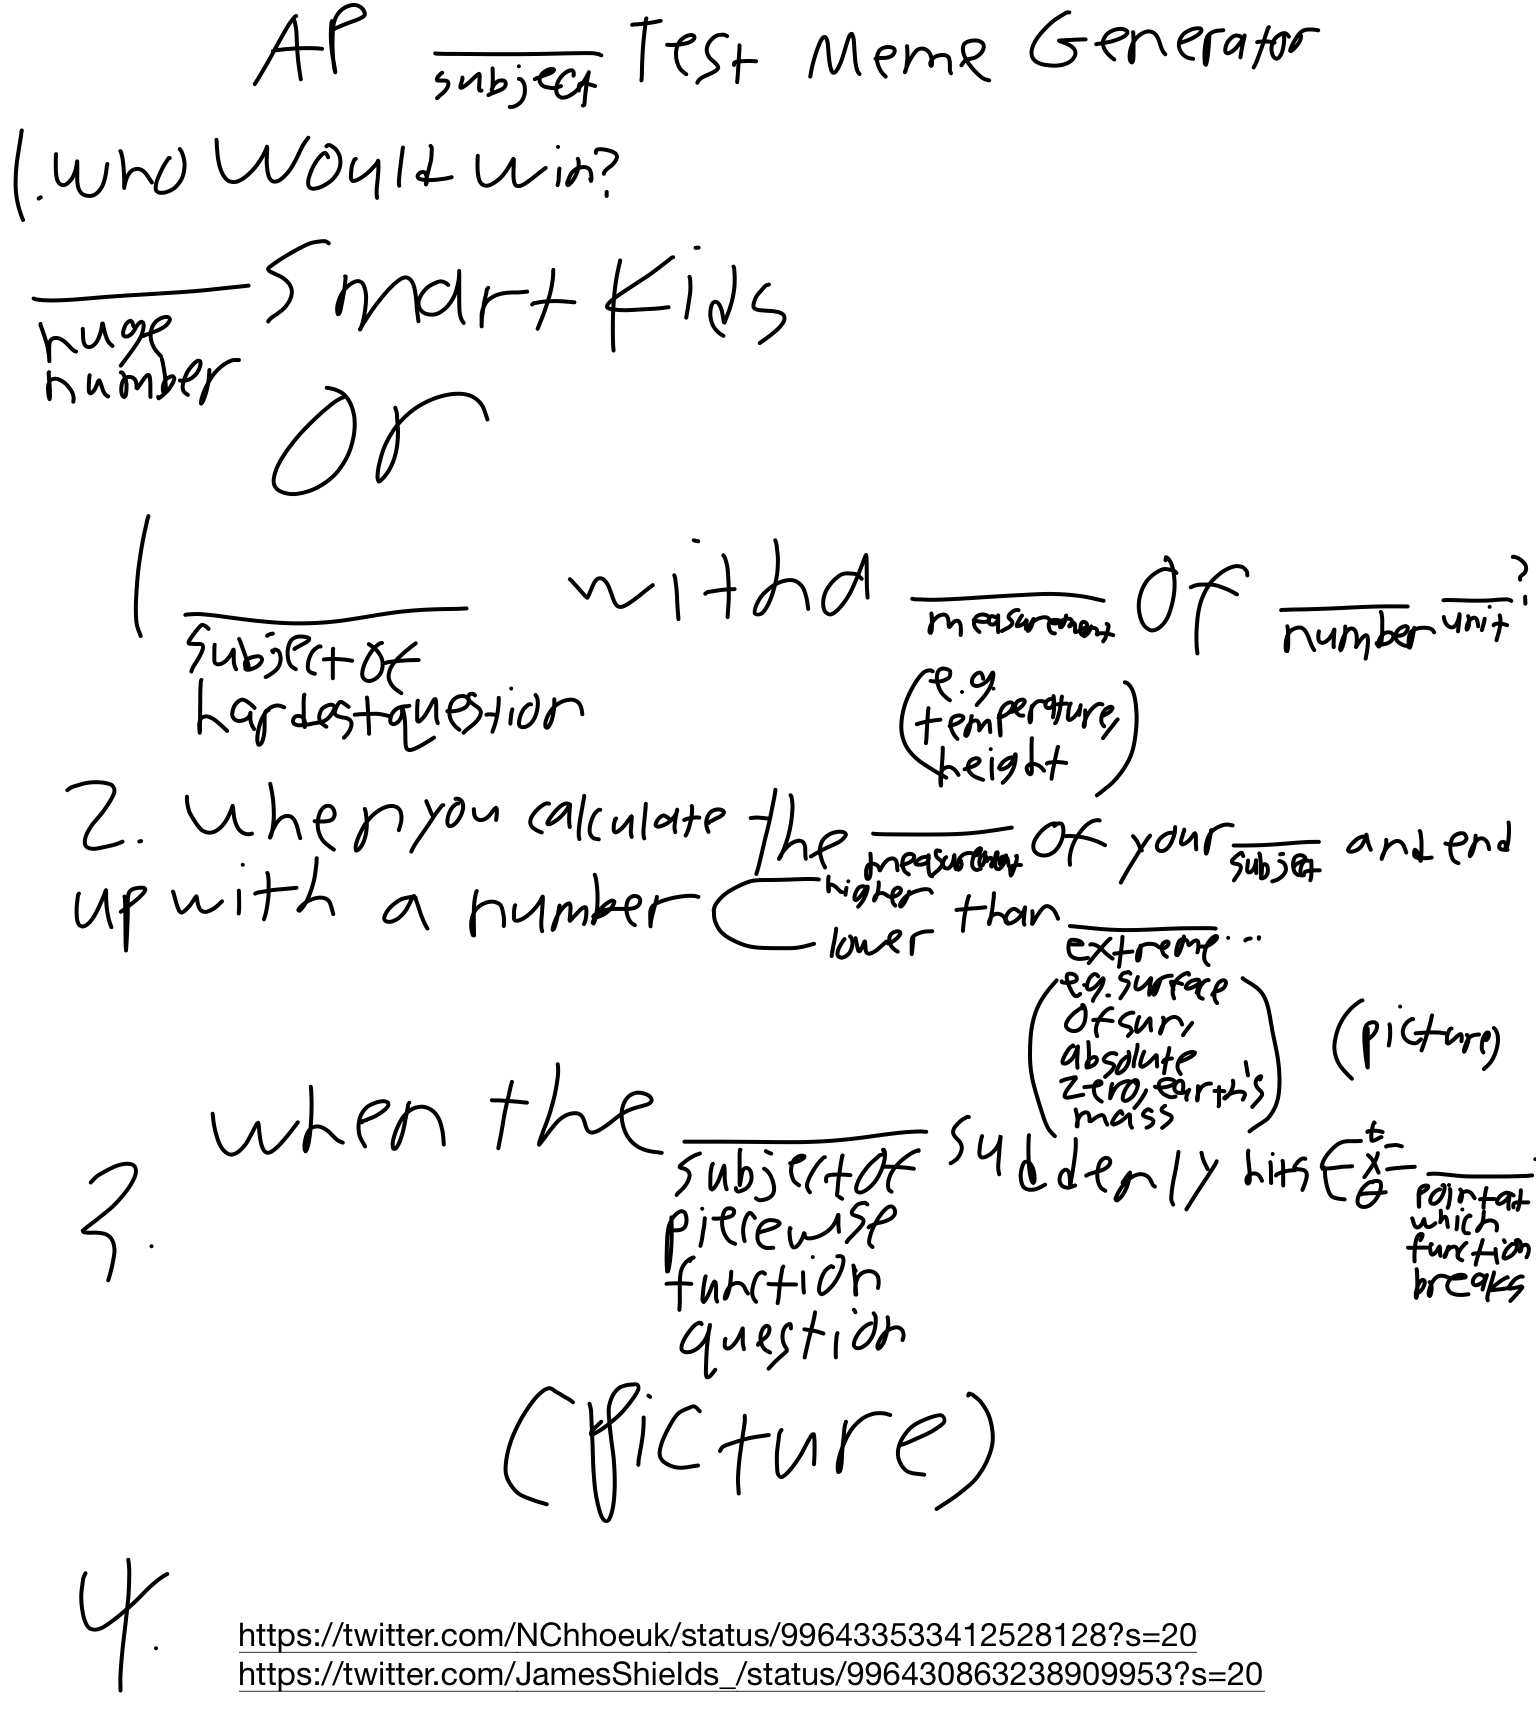 AP ____ Test Meme Generator
subject
1. Who Would Win?
____ Smart Kids
huge
number
or
1 ____ with a ____ of ____ ____?
subject of
hardest question
measurement
number unit
(e.g.
temperature,
height)
2. When you calculate the ____ of your ____ and end
measurement
subject
up with a number higher
lower than ____...
extreme
(e.g. surface
of sun,
absolute
zero, earth's
mass)
(picture)
3. when the ____ suddenly hits t
x = ____
θ
subject of
piecewise
function
question
point at
which
function
breaks
(picture)
4.
https://twitter.com/NChhoeuk/status/996433533412528128?s=20
https://twitter.com/JamesShields_/status/996430863238909953?s=20